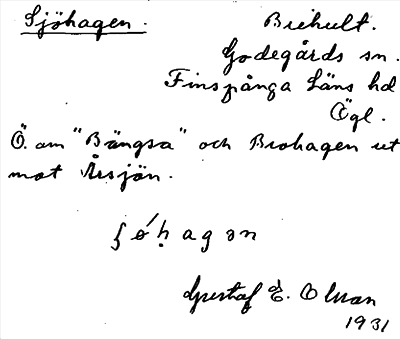 Sjöhagen.
Brehult.
Godegårds sn.
Finspånga läns hd
Ögl.
Ö. om "Bängsa" och Brohagen ut
mot Årsjön.
Gustaf E. Olsson
1931